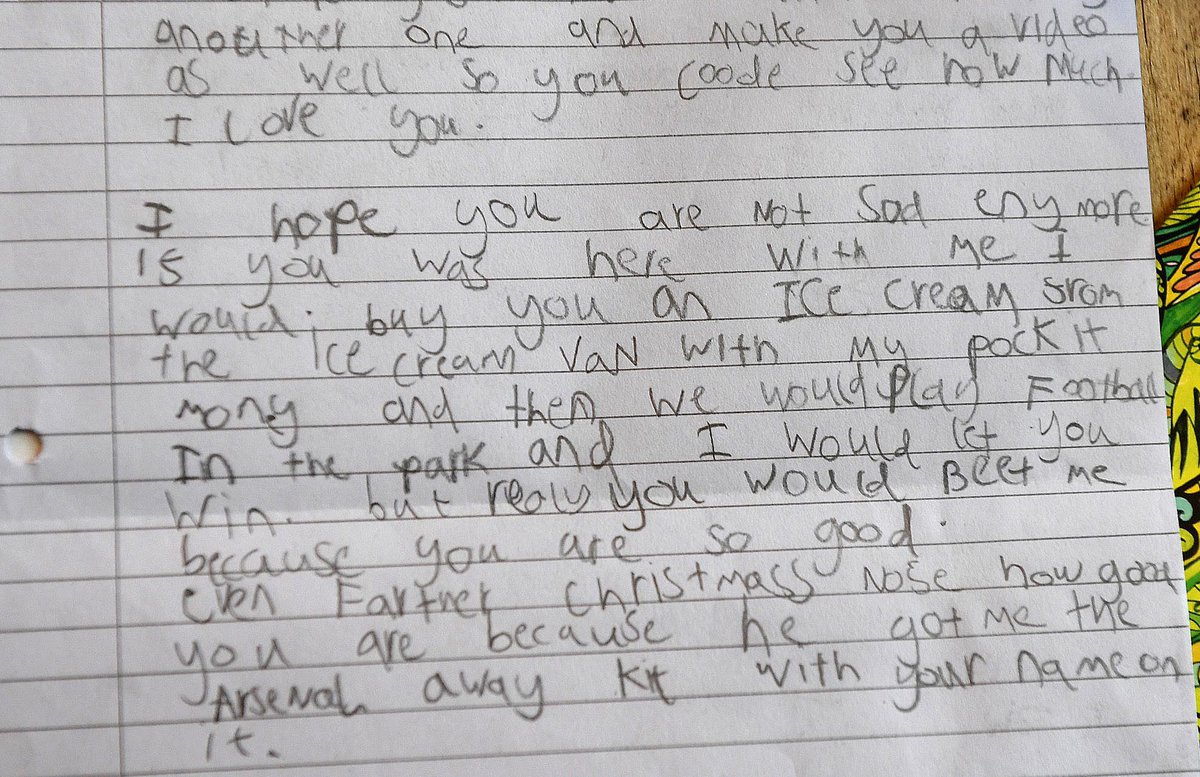 anouther one and make you a video
as well so you coode see how much
I love you.
I hope you are not sad eny more
is you was here with me I
would buy you an Ice cream srom
the Ice cream van with my pockit
mony and then we would play Football
In the park and I would let you
win. but realy you would Beet me
because you are so good.
even Farther christmass nose how good
you are because he got me the
Arsenal away kit with your name on
it.